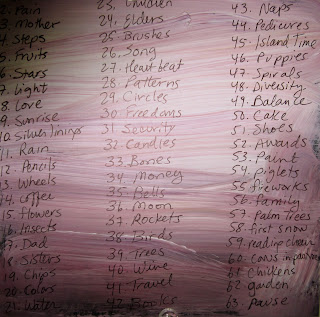 2. Pain
3. Mother
4. Steps
5. Fruits
6. Stars
7. Light
8. Love
9. Sunrise
10. Silver linings
11. Rain
12. Pencils
13. Wheels
14. Coffee
15. Flowers
16. Insects
17. Dad
18. Sisters
19. Chips
20. Colors
21. Water
23. Children
24. Elders
25. Brushes
26. Song
27. Heart beat
28. Patterns
29. Circles
30. Freedoms
31. Security
32. Candles
33. Bones
34. Money
35. Bells
36. Moon
37. Rockets
38. Birds
39. Trees
40. Wine
41. Travel
42. Books
43. Naps
44. Pedicures
45. Island Time
46. Puppies
47. Spirals
48. Diversity
49. Balance
50. Cake
51. Shoes
52. Awards
53. Paint
54. piglets
55. fireworks
56. Family
57. Palm Trees
58. first snow
59. reading
60. coins in
61. Chickens
62. garden
63. Pause